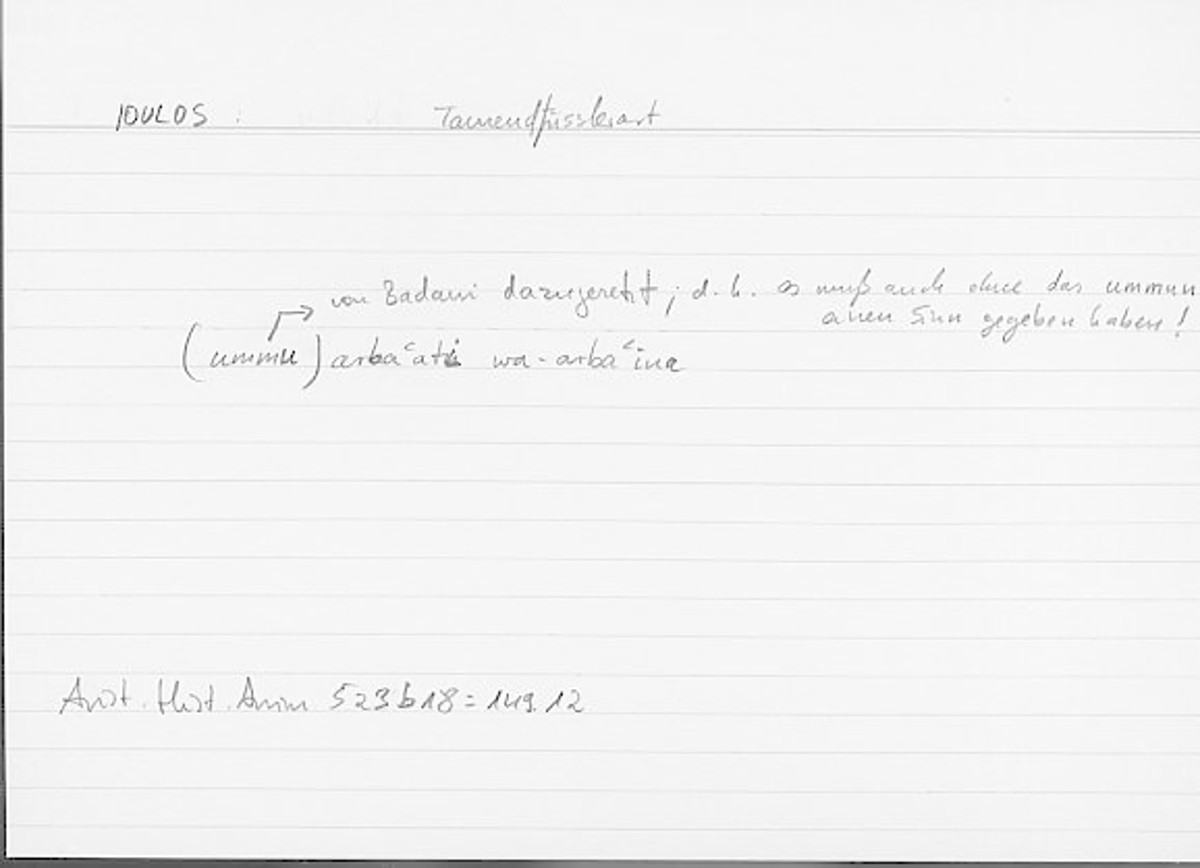 IOULOS : Tausendfüsslerart
von Badawi dazugesetzt; d.h. es muß auch ohne das ummun
einen Sinn gegeben haben!
(ummu) arbaʿati wa-arbaʿina
Arist. Hist. Anim 523b18 = 149.12